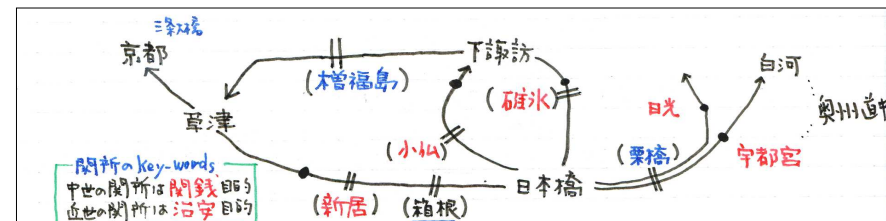 三条大橋
京都
下諏訪
白河
(木曽福島)
(碓氷)
日光
奥州道中
草津
(小仏)
(栗橋)
宇都宮
関所のkey-words
中世の関所は関銭目的
近世の関所は治安目的
(新居)
(箱根)
日本橋